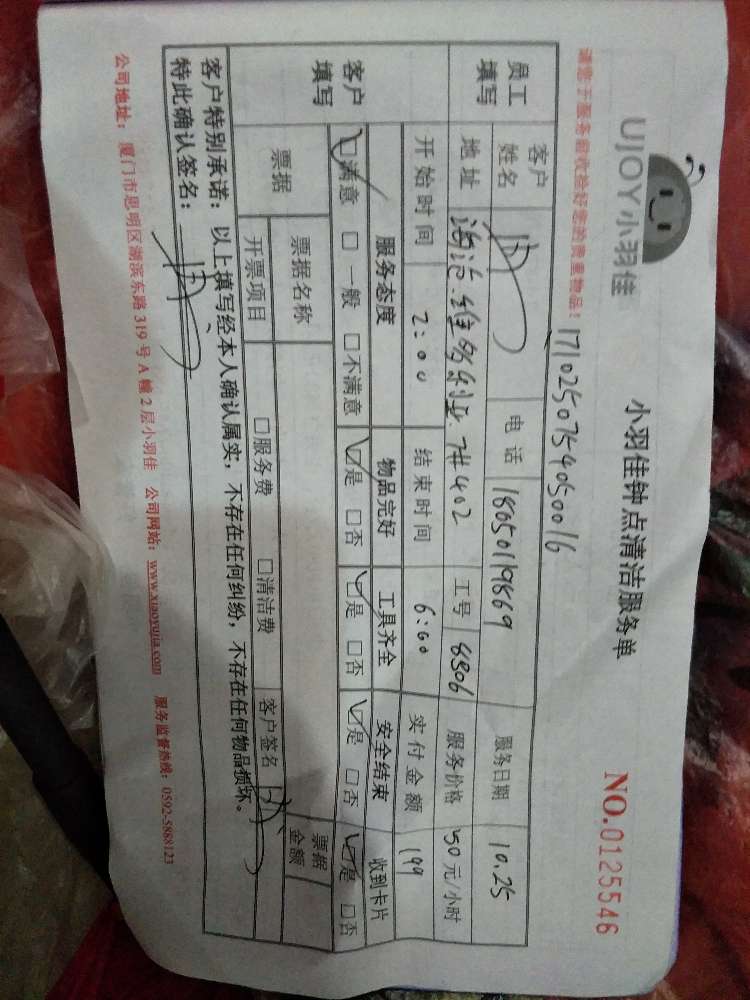 UJOY小羽佳
小羽佳钟点清洁服务单
NO.0125546
请您于服务前收捡好您的贵重物品!
1710250754050016
员工填写
客户姓名 电话 18050119869 服务日期 10.25
地址 维多利亚 7#402 工号 8806 服务价格 50元/小时
开始时间 2:00 结束时间 6:00 实付金额 199
客户填写
服务态度 物品完好 工具齐全 安全结束 收到卡片
☑满意 □一般 □不满意 ☑是 □否 ☑是 □否 ☑是 □否 ☑是 □否
票据 票据名称 票据金额
开票项目 □服务费 □清洁费 客户签名
客户特别承诺:以上填写经本人确认属实,不存在任何纠纷,不存在任何物品损坏。
特此确认签名:
公司地址:厦门市思明区湖滨东路319号A幢2层小羽佳 公司网站:www.xiaoyujia.com 服务监督热线:0592-5888123